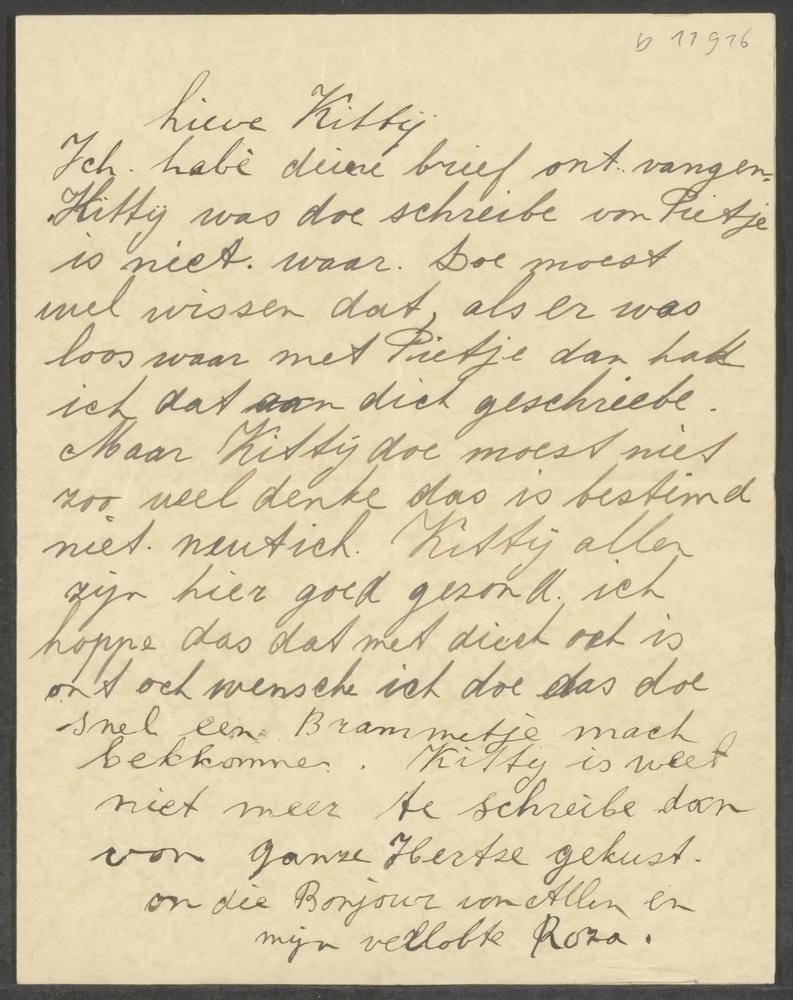 b 11916
lieve Kittÿ
Ich habe deine brief ont vangen.
Kittÿ was doe schreibe von Pietje
is niet. waar. Doe moest
wel wissen dat, als er was
loos waar met Pietje dan had
ich dat aan dich geschriebe.
Maar Kittÿ doe moest niet
zoo veel denke das is bestimd
niet. neutich. Kittÿ allen
zijn hier goed gezond. ich
hoppe das dat met diech och is
ont och wensche ich doe das doe
snel een Brammetje mach
bekkomme. Kittÿ is weet
niet meer te schreibe dan
von ganze Hertse gekust.
on die Bonjour von Allen en
mijn verlobte Roza.